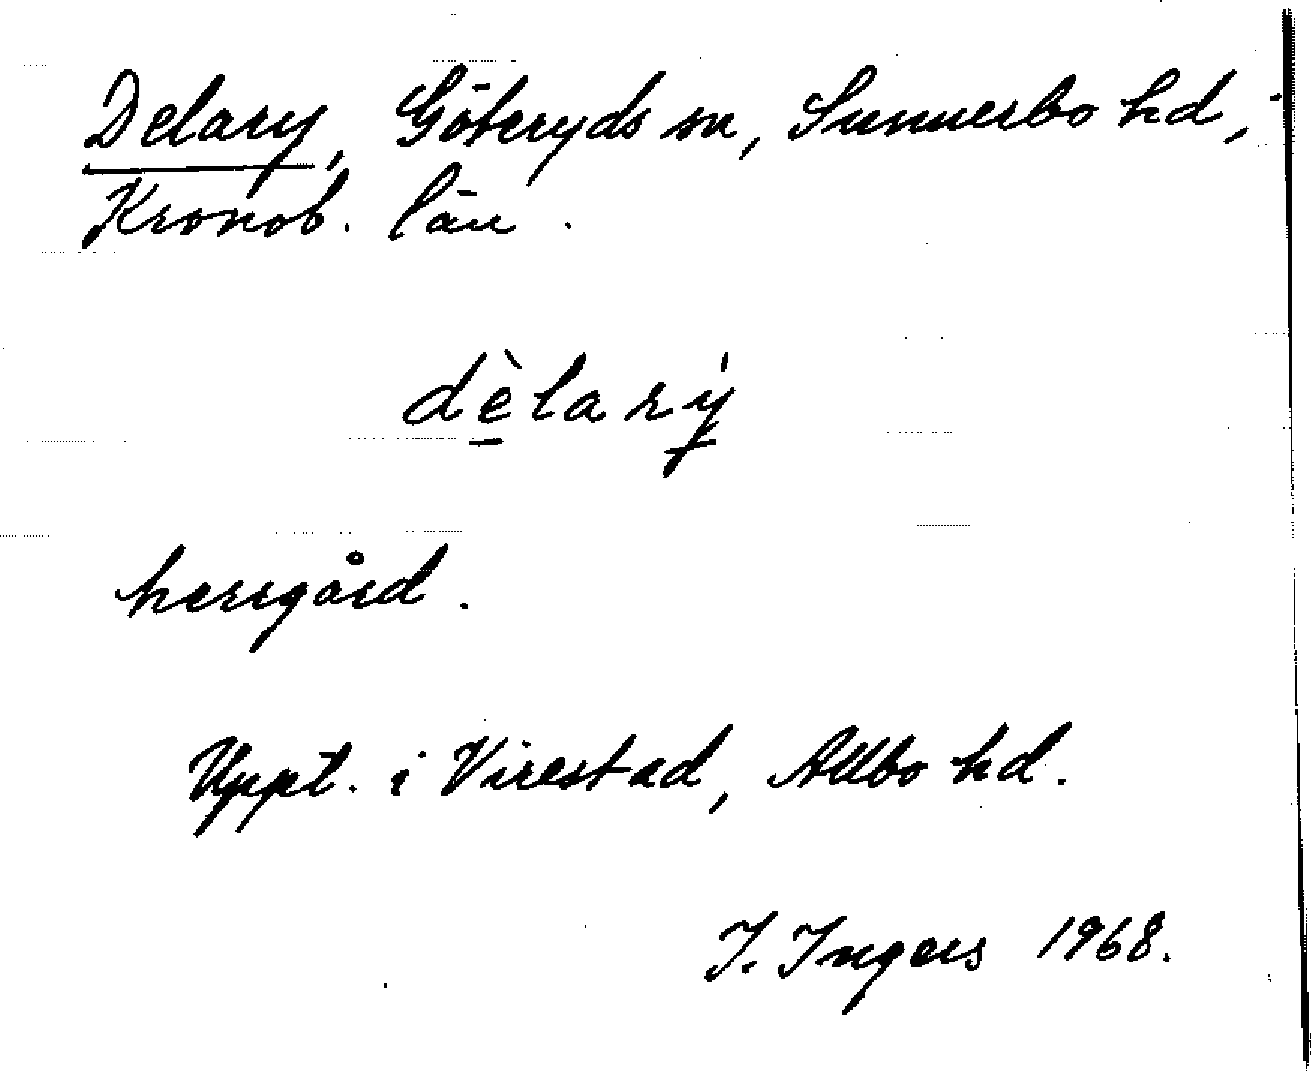 Delary, Göteryds sn, Sunnerbo hd,
Kronob. län.
dè̱larý̱
herrgård.
Uppt. i Virestad, Allbo hd.
I. Ingers 1968.